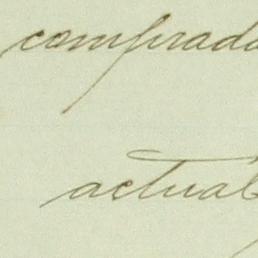 comprada
actual